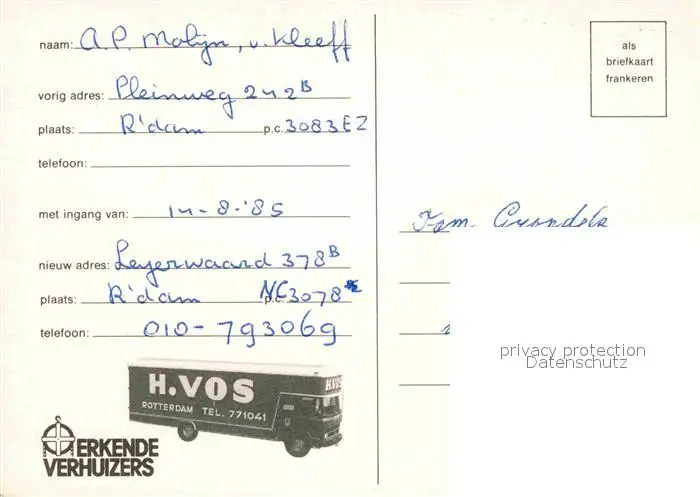 naam: A.P. Molijn, v. Kleeff
vorig adres: Pleinweg 242 B
plaats: R'dam p.c. 3083 EZ
telefoon:
met ingang van: 14-8-'85
nieuw adres: Leyerwaard 378 B
plaats: R'dam NC p.c. 3078
telefoon: 010-793069
H.VOS
ROTTERDAM TEL. 771041
H.VOS
ERKENDE
VERHUIZERS
als
briefkaart
frankeren
Fam.
privacy protection
Datenschutz